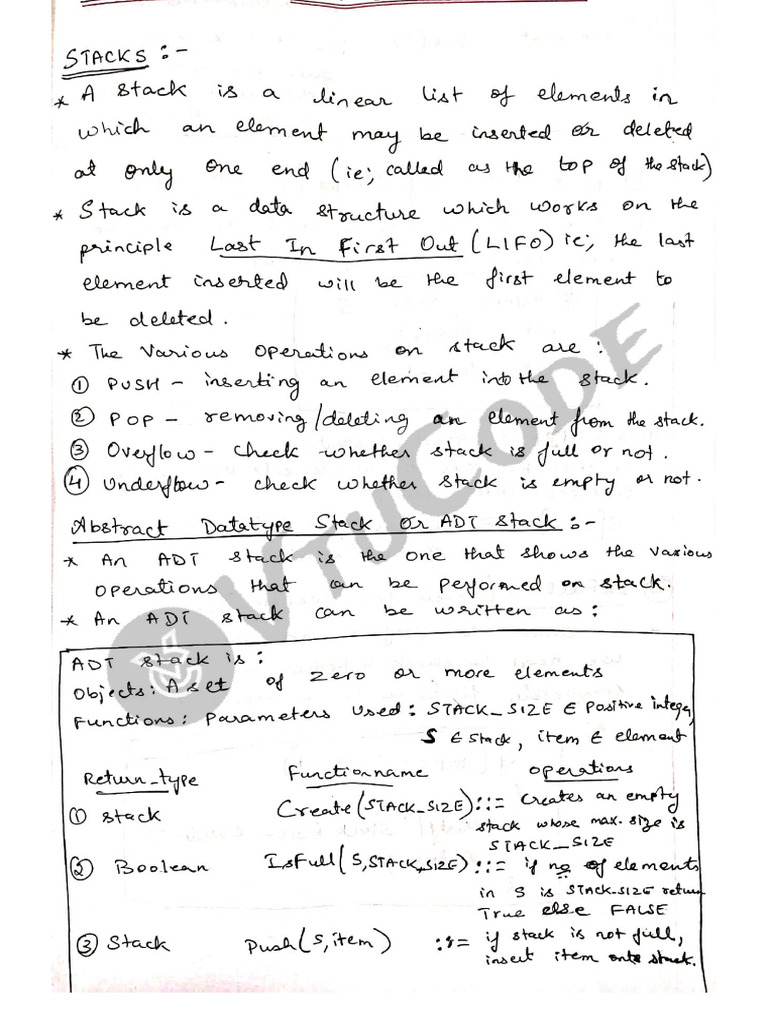 STACKS :-
* A stack is a linear list of elements in
which an element may be inserted or deleted
at only one end (ie; called as the top of the stack)
* Stack is a data structure which works on the
principle Last In First Out (LIFO) ie; the last
element inserted will be the first element to
be deleted.
* The various operations on stack are :
① PUSH - inserting an element into the stack.
② POP - removing/deleting an element from the stack.
③ Overflow - check whether stack is full or not.
④ Underflow - check whether stack is empty or not.
Abstract Datatype Stack or ADT stack :-
* An ADT stack is the one that shows the various
operations that can be performed on stack.
* An ADT stack can be written as :
VTUCODE
ADT stack is :
Objects : A set of zero or more elements
Functions : Parameters used : STACK_SIZE ∈ Positive integer,
S ∈ stack, item ∈ element
Return_type Function name operations
① stack Create(STACK_SIZE) ::= Creates an empty
stack whose max. size is
STACK_SIZE
② Boolean IsFull(S,STACK_SIZE) ::= if no of elements
in S is STACK-SIZE return
True else FALSE
③ Stack Push(S,item) ::= if stack is not full,
insert item onto stack.